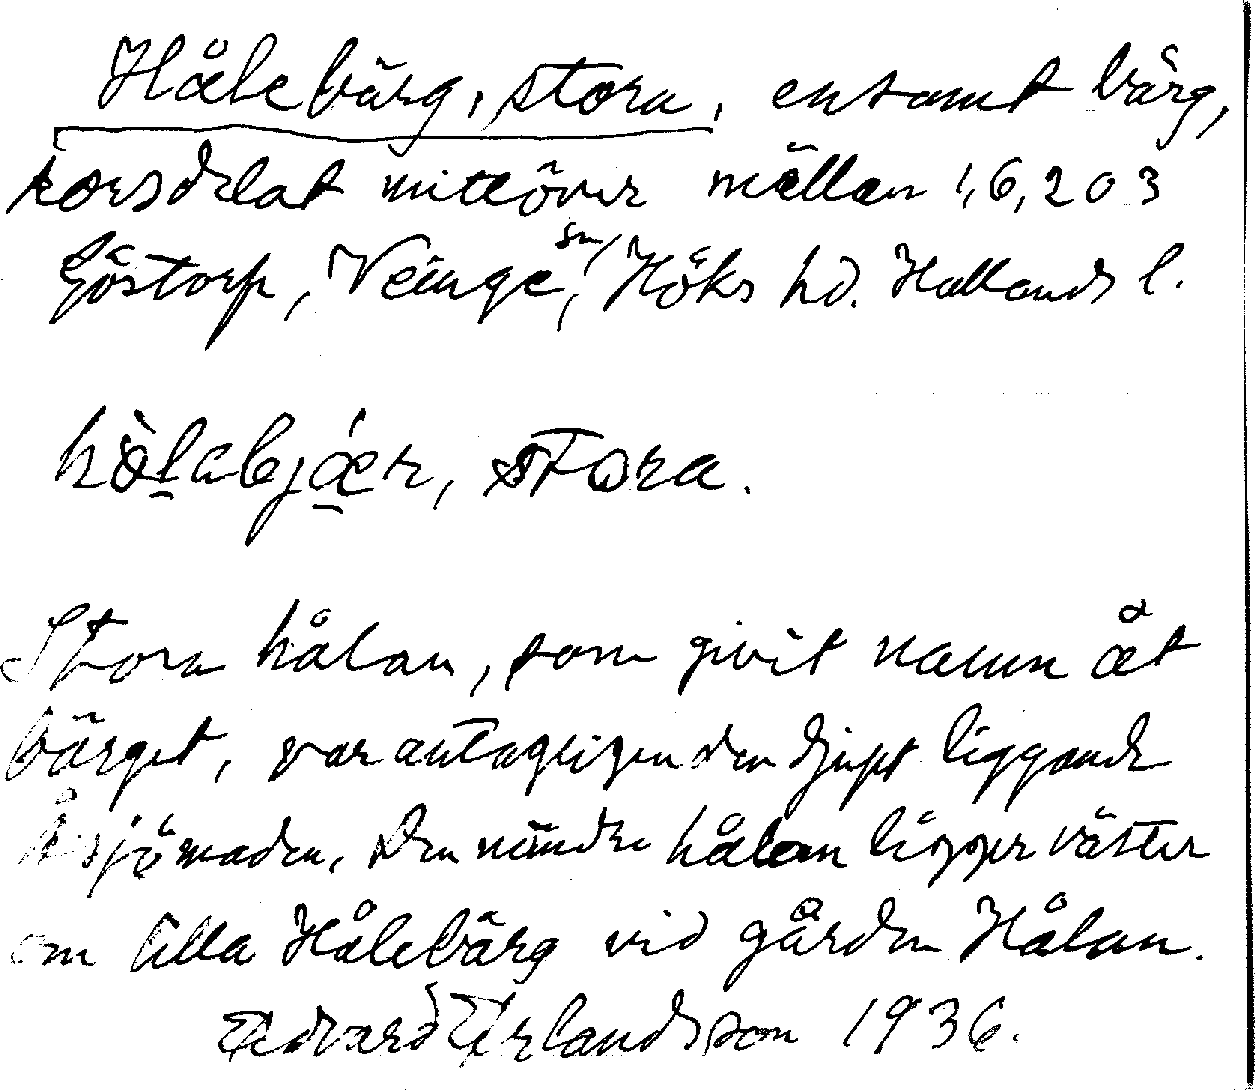 Hålebärg, stora, ensamt bärg,
korsdelat mittöver mällan 1,6,2 o 3
Göstorp, Veinge sn, Höks hd. Hallands l.
hòlabjǽr, stora.
Stora hålan, som givit namn åt
bärget, var antagligen den djupt liggande
sjömaden. Den mindre hålan ligger väster
om lilla Hålebärg vid gården Hålan.
Edvard Erlandsson 1936.